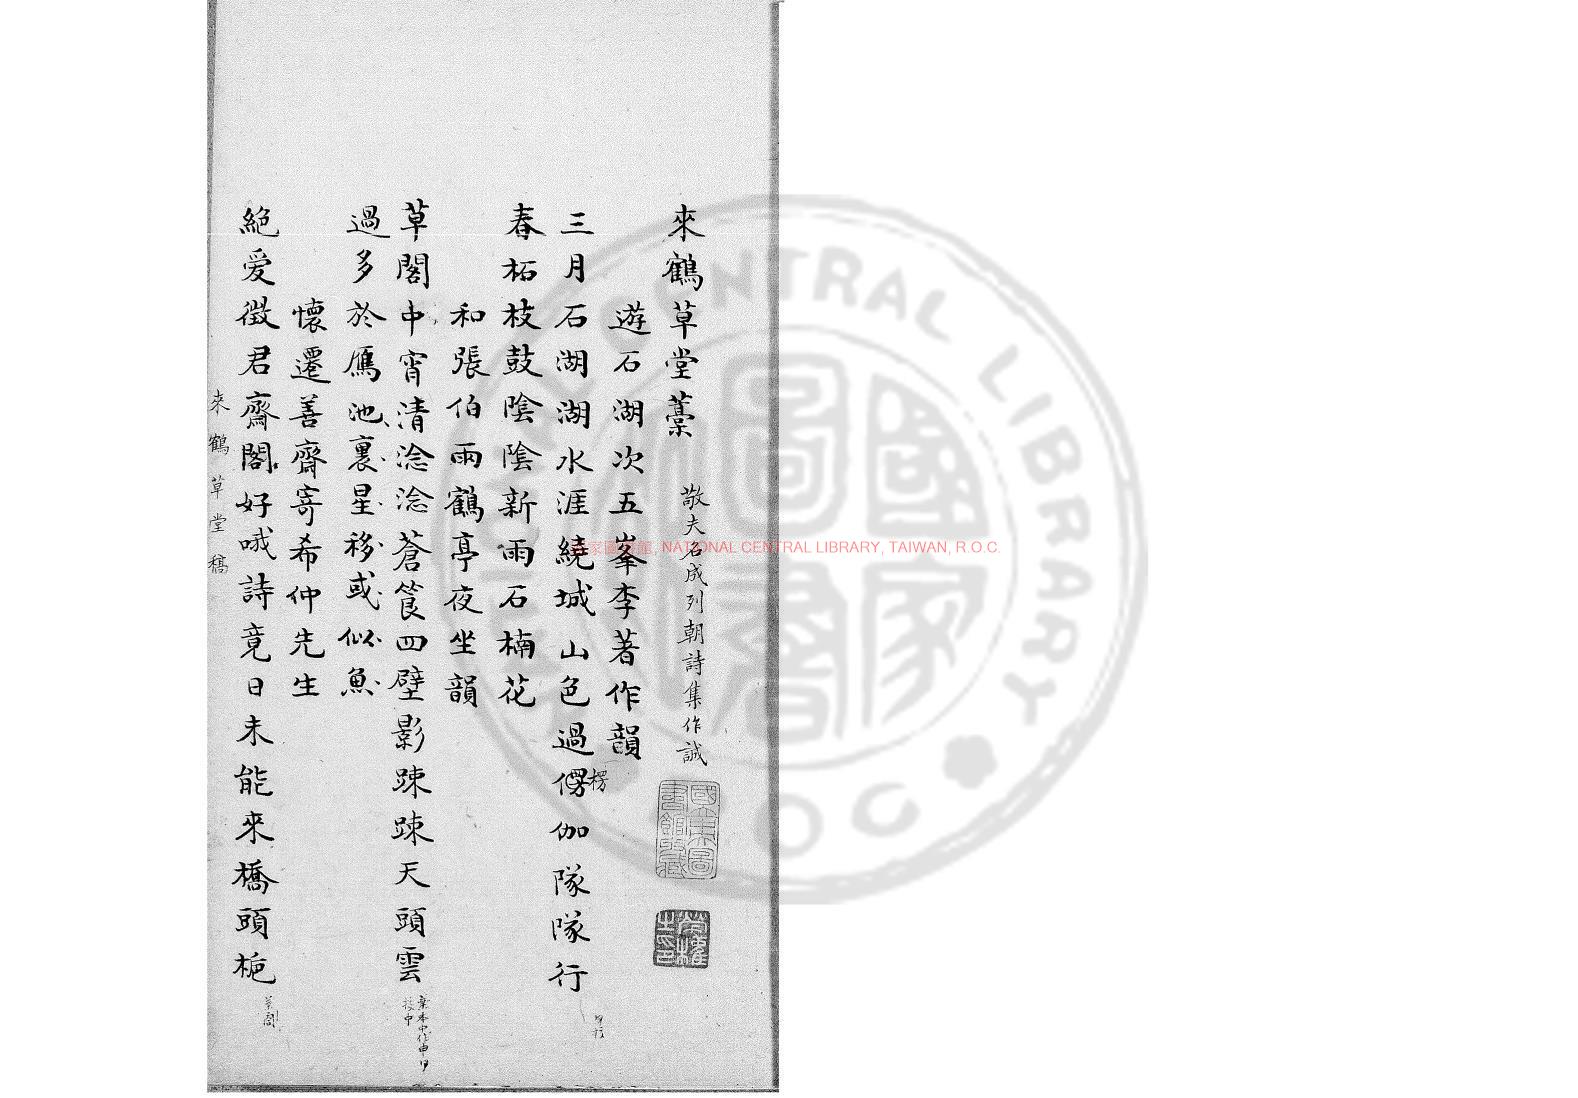 來鶴草堂藁 敬夫名成列朝詩集作誠
遊石湖次五峯李著作韻
三月石湖湖水涯繞城山色過㑮伽隊隊行
楞
春柘枝鼓陰陰新雨石楠花
和張伯雨鶴亭夜坐韻
草閣中宵清淰淰蒼筤四壁影踈踈天頭雲
過多於鴈池裏星移或似魚
懷遷善齋寄希仲先生
絕愛徵君齋閣好哦詩竟日未能來橋頭梔
來鶴草堂稿
國家圖書館, NATIONAL CENTRAL LIBRARY, TAIWAN, R.O.C.
NATIONAL CENTRAL LIBRARY R.O.C.
國家圖書館藏